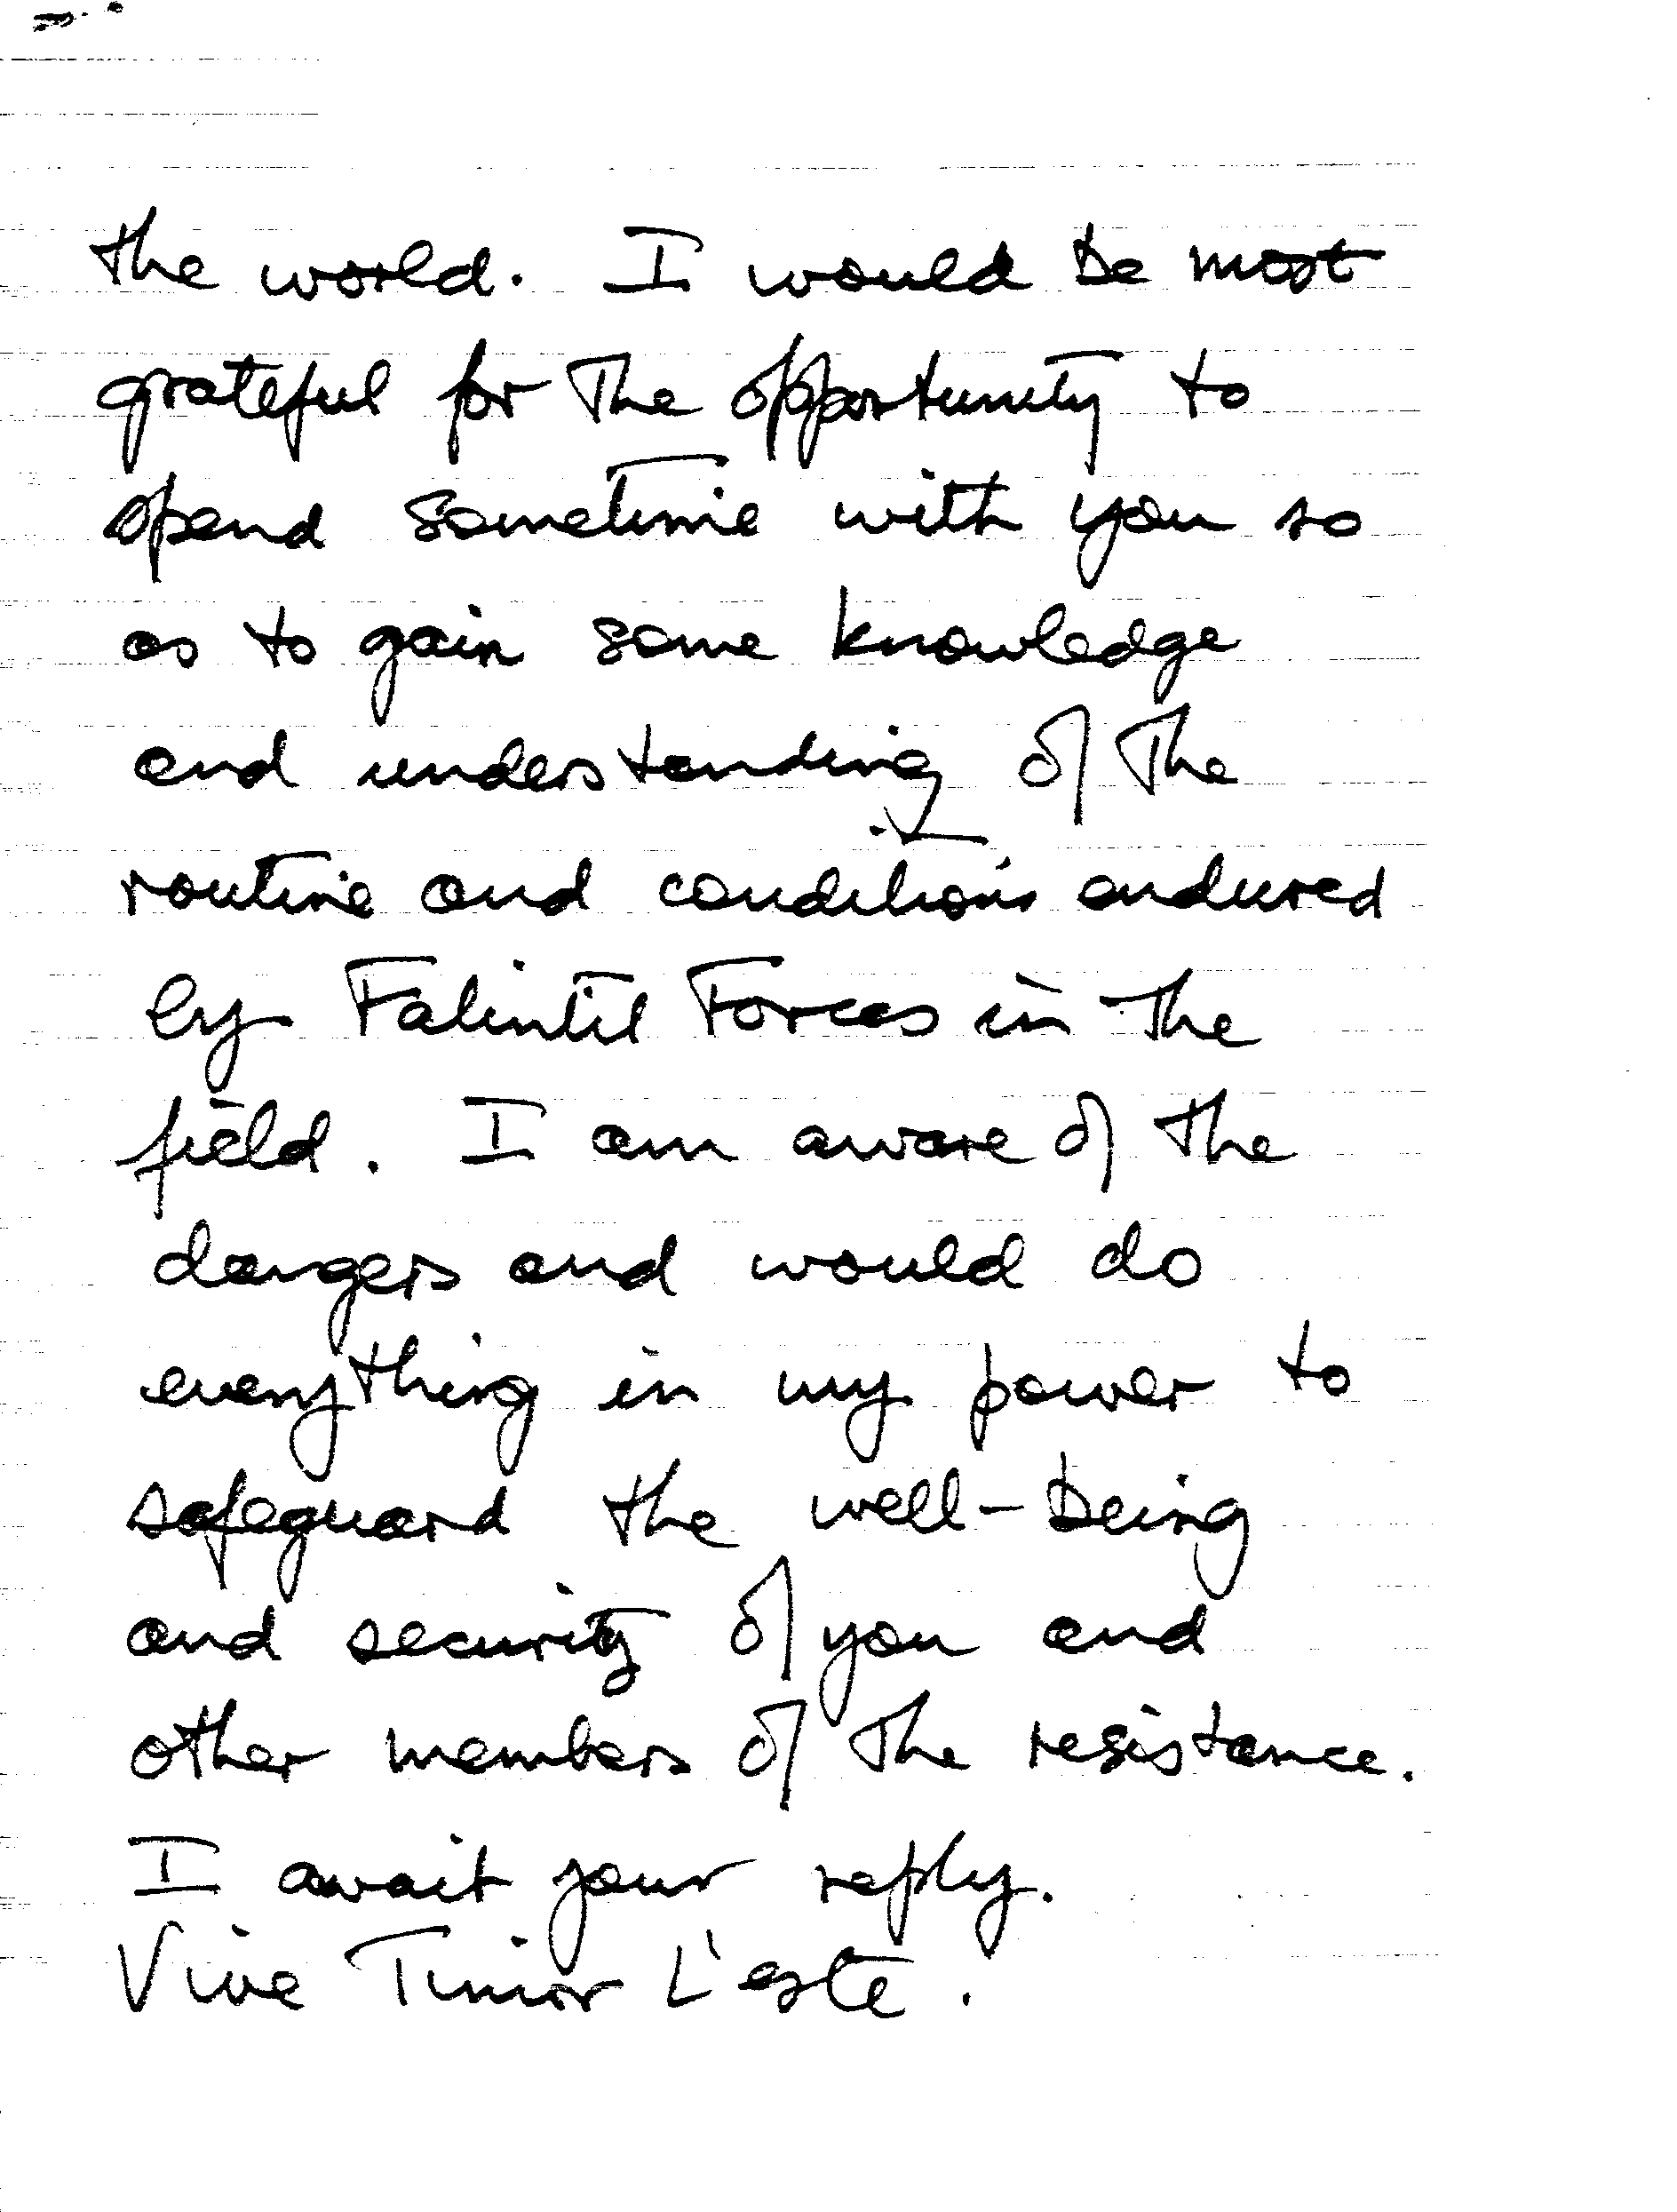 the world. I would be most
grateful for the opportunity to
spend sometime with you so
as to gain some knowledge
and understanding of the
routine and conditions endured
by Falintil Forces in the
field. I am aware of the
dangers and would do
everything in my power to
safeguard the well-being
and security of you and
other members of the resistance.
I await your reply.
Vive Timor L'este.